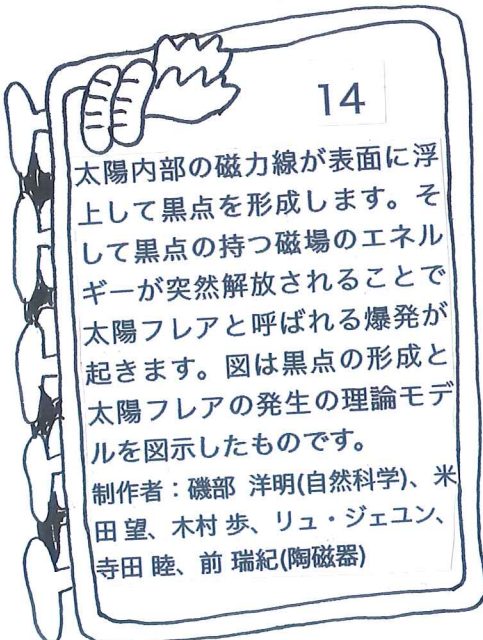 14
太陽内部の磁力線が表面に浮
上して黒点を形成します。そ
して黒点の持つ磁場のエネル
ギーが突然解放されることで
太陽フレアと呼ばれる爆発が
起きます。図は黒点の形成と
太陽フレアの発生の理論モデ
ルを図示したものです。
制作者：磯部 洋明(自然科学)、米
田 望、木村 歩、リュ・ジェユン、
寺田 睦、前 瑞紀(陶磁器)